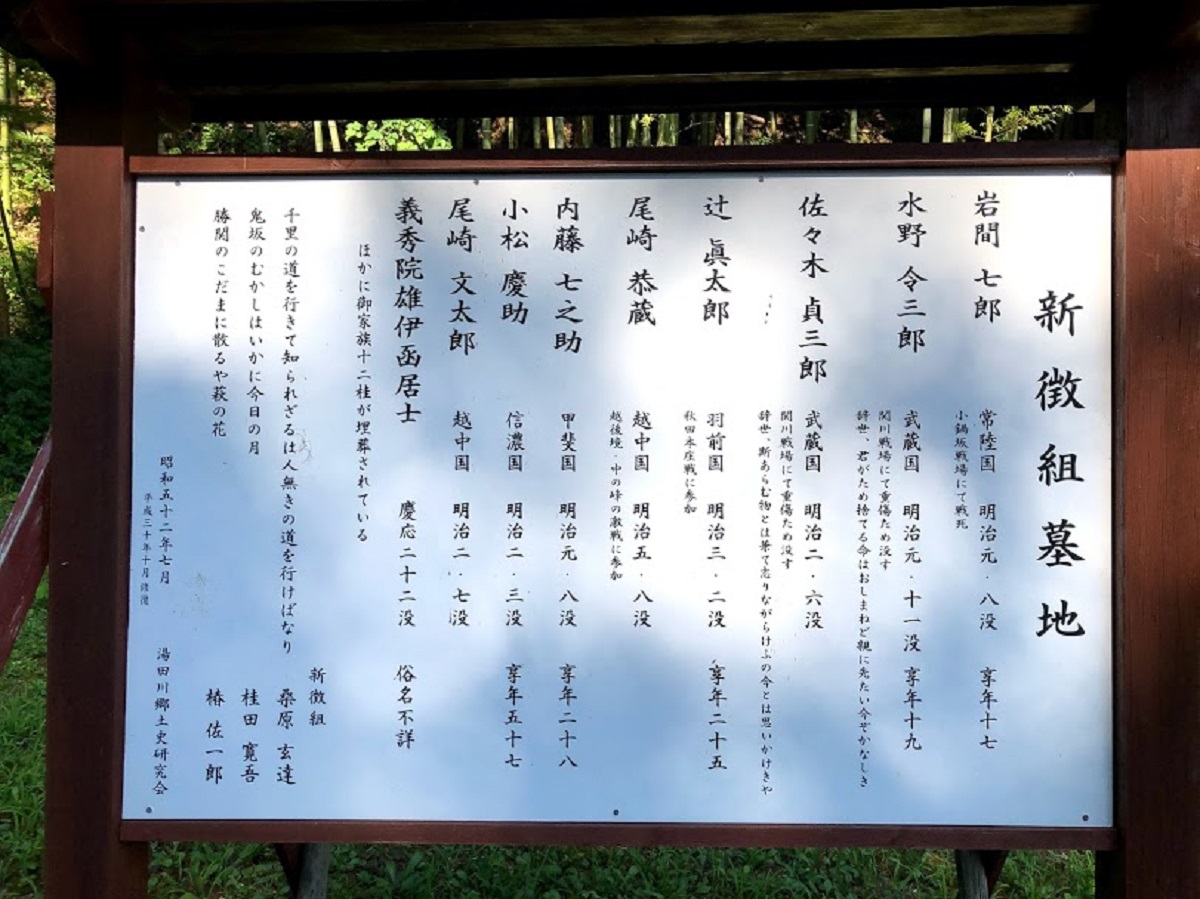 新徴組墓地
岩間 七郎 常陸国 明治元・八没 享年十七
小鍋坂戦場にて戦死
水野 令三郎 武蔵国 明治元・十一没 享年十九
関川戦場にて重傷ため没す
辞世、君がため捨てる命はおしまねど親に先たい今ぞかなしき
佐々木 貞三郎 武蔵国 明治二・六没
関川戦場にて重傷ため没す
辞世、断あらむ物とは兼て志りながらけふの今とは思いかけきや
辻 眞太郎 羽前国 明治三・二没 享年二十五
秋田本庄戦に参加
尾崎 恭蔵 越中国 明治五・八没
越後境・中の峰の激戦に参加
内藤 七之助 甲斐国 明治元・八没 享年二十八
小松 慶助 信濃国 明治二・三没 享年五十七
尾崎 文太郎 越中国 明治二・七没
義秀院雄伊函居士 慶応二十二没 俗名不詳
ほかに御家族十二桂が埋葬されている
新徴組
千里の道を行きて知られざるは人無きの道を行けばなり 桑原 玄達
鬼坂のむかしはいかに今日の月 桂田 寛吾
勝関のこだまに散るや萩の花 椿 佐一郎
昭和五十二年七月 湯田川郷土史研究会
平成三十年十月 修復